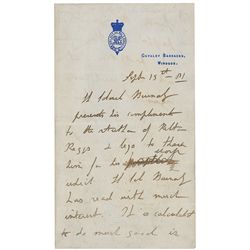 CAVALRY BARRACKS,
WINDSOR.
Sept 15th 81
Lt Colonel Burnaby
presents his compliments
to the
& begs to thank
him for his
Lt Col Burnaby
has read with much
interest. It is calculated
to do much good in